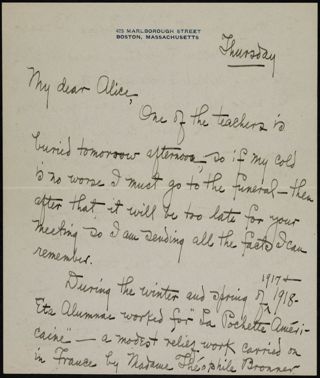 425 MARLBOROUGH STREET
BOSTON, MASSACHUSETTS
Thursday
My dear Alice,
One of the teachers is
buried tomorrow afternoon, so if my cold
is no worse I must go to the funeral — then
after that, it will be too late for your
meeting so I am sending all the facts I can
remember.
During the winter and spring of 1917 + 1918 -
Eta Alumnae worked for "La Pochette Améri-
caine" — a modest relief work carried on
in France by Madame Théophile Bronner